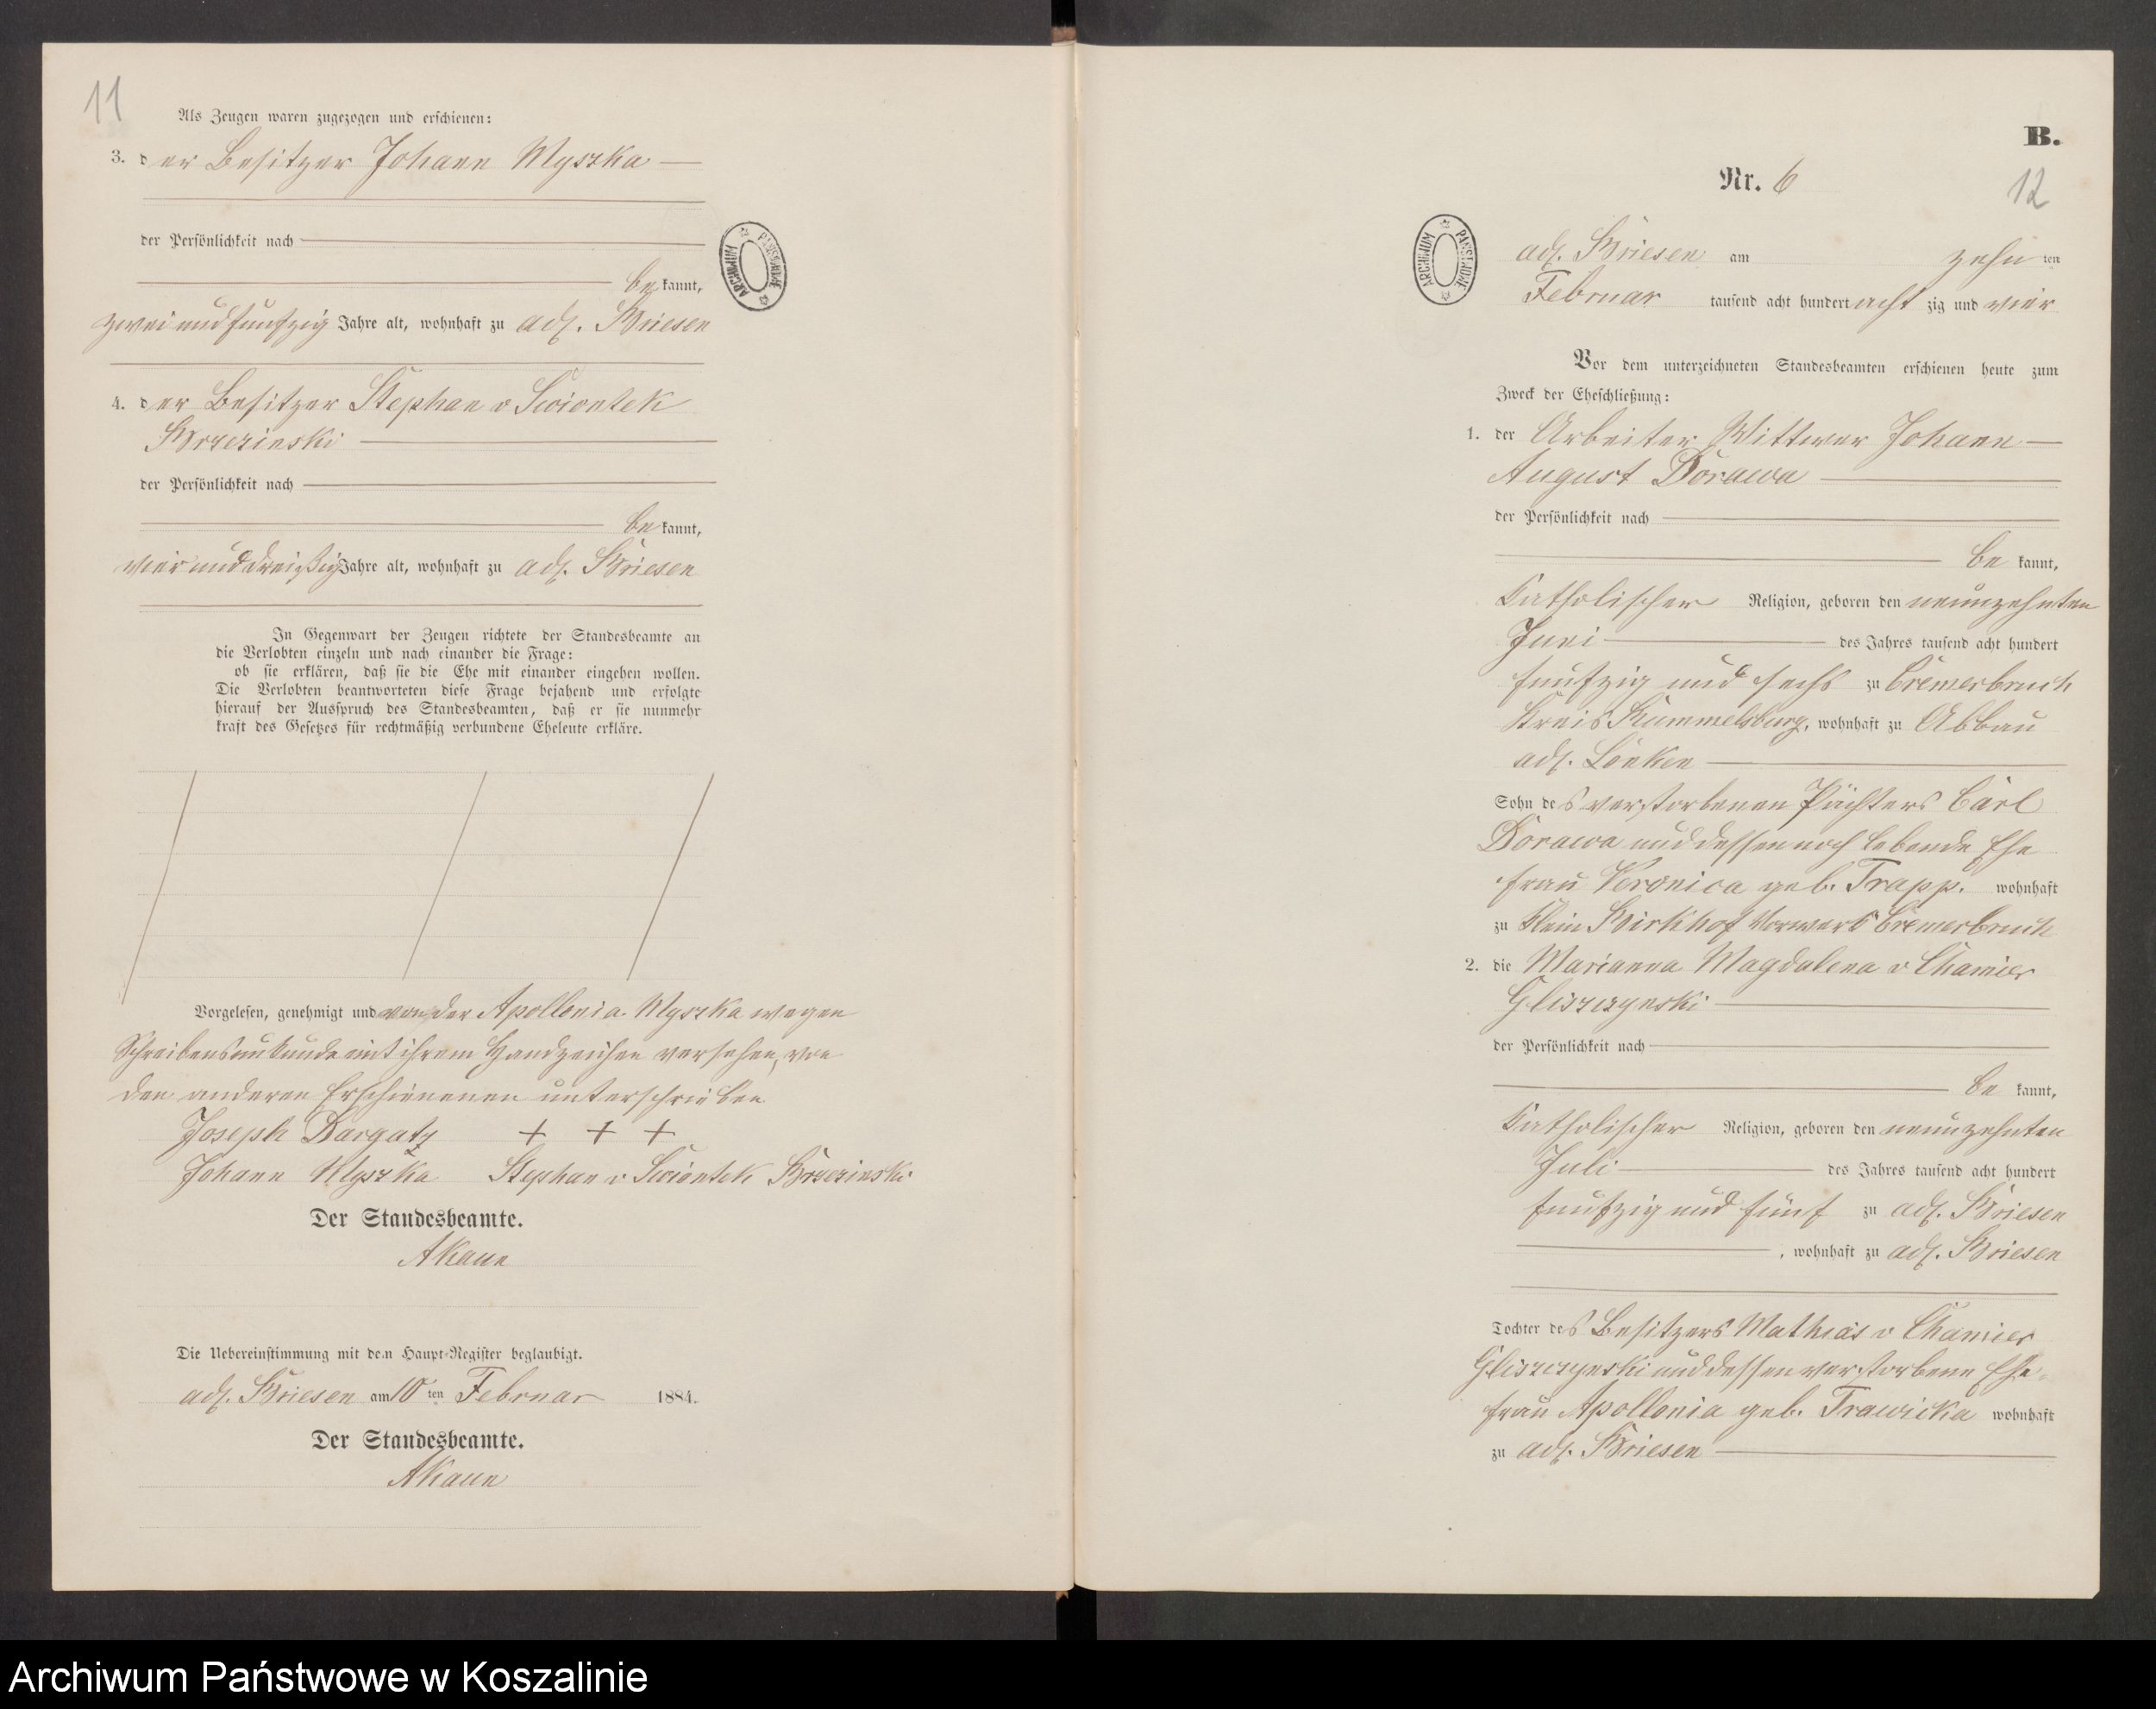 11
Als Zeugen waren zugezogen und erschienen:
3. der Besitzer Johann Myszka
der Persönlichkeit nach
be kannt,
zwei und funfzig Jahre alt, wohnhaft zu adl. Briesen
4. der Besitzer Stephan v Swiontek
Brzezinski
der Persönlichkeit nach
be kannt,
vier und dreißig Jahre alt, wohnhaft zu adl. Briesen
In Gegenwart der Zeugen richtete der Standesbeamte an
die Verlobten einzeln und nach einander die Frage:
ob sie erklären, daß sie die Ehe mit einander eingehen wollen.
Die Verlobten beantworteten diese Frage bejahend und erfolgte
hierauf der Ausspruch des Standesbeamten, daß er sie nunmehr
kraft des Gesetzes für rechtmäßig verbundene Eheleute erkläre.
Vorgelesen, genehmigt und von der Apollonia Myszka wegen
Schreibensunkunde mit ihrem Handzeichen versehen, von
den anderen Erschienenen unterschrieben
Joseph Dargatz + + +
Johann Myszka Stephan v Swiontek Brzezinski
Der Standesbeamte.
AKaun
Die Uebereinstimmung mit dem Haupt-Register beglaubigt.
adl. Briesen am 10 ten Februar 1884.
Der Standesbeamte.
AKaun
ARCHIWUM PAŃSTWOWE
B.
Nr. 6
12
ARCHIWUM PAŃSTWOWE
adl. Briesen am zehn ten
Februar tausend acht hundert acht zig und vier
Vor dem unterzeichneten Standesbeamten erschienen heute zum
Zweck der Eheschließung:
1. der Arbeiter Wittwer Johann
August Dorawa
der Persönlichkeit nach
be kannt,
Katholischer Religion, geboren den neunzehnten
Juni des Jahres tausend acht hundert
funfzig und sechs zu Cremerbruch
Kreis Rummelsburg, wohnhaft zu Abbau
adl. Lonken
Sohn des verstorbenen Pächters Carl
Dorawa und dessen noch lebende Ehe
frau Veronica geb. Trapp. wohnhaft
zu Klein Birkhof Vorwerk Cremerbruch
2. die Marianna Magdalena v Chamier
Gliszczynski
der Persönlichkeit nach
be kannt,
Katholischer Religion, geboren den neunzehnten
Juli des Jahres tausend acht hundert
funfzig und fünf zu adl. Briesen
, wohnhaft zu adl. Briesen
Tochter des Besitzers Mathias v Chamier
Gliszczynski und dessen verstorbene Ehe-
frau Apollonia geb. Trawicka wohnhaft
zu adl. Briesen
Archiwum Państwowe w Koszalinie